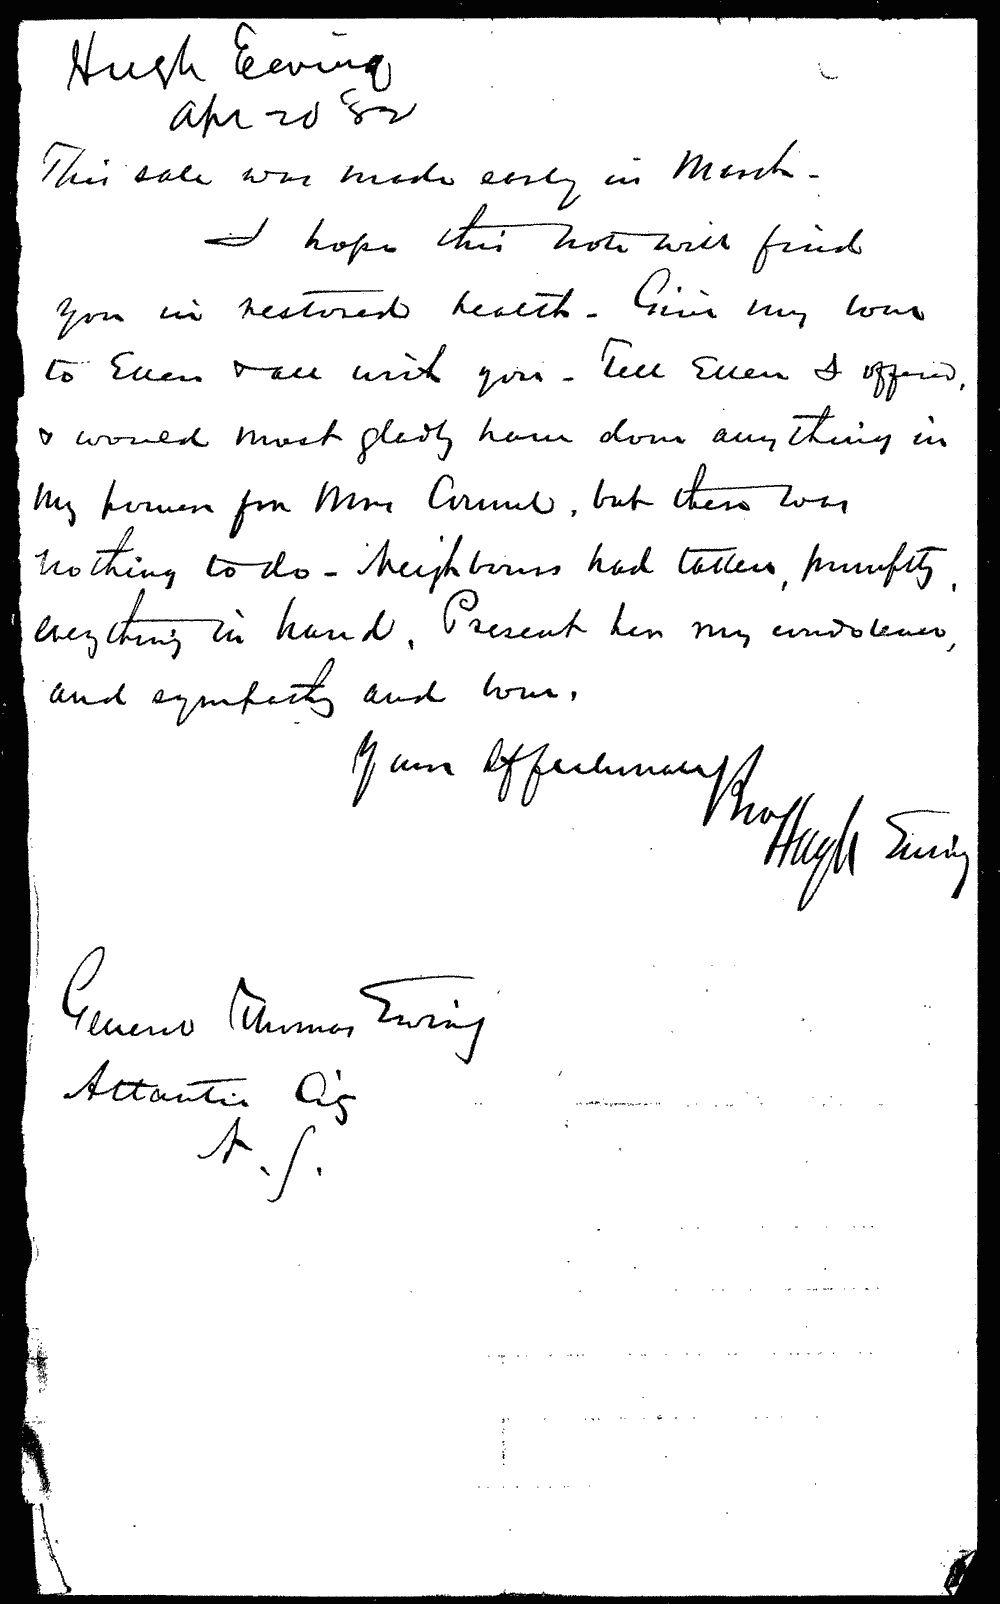 Hugh Ewing
Apr 20 '82
This sale was made early in March -
I hope this note will find
you in restored health - Give my love
to Ellen & all with you - Tell Ellen I offered,
& would most gladly have done anything in
my power for Mrs, but there was
nothing to do - Neighbours had taken, promptly,
everything in hand. Present her my condolence,
and sympathy and love.
Yours Affectionately
Bro
Hugh Ewing
General Thomas Ewing
Atlantic City
N. J.